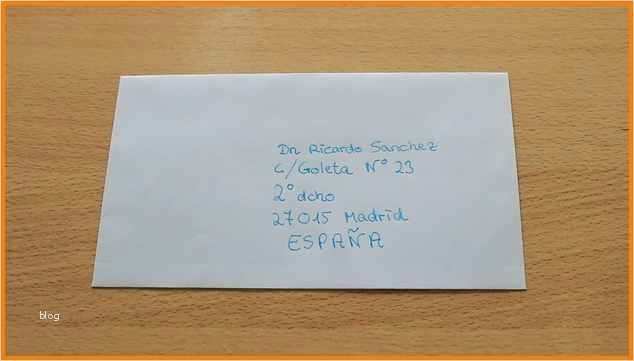 Dn Ricardo Sanchez
C/Goleta Nº 23
2º dcho
27015 Madrid
ESPAÑA
blog